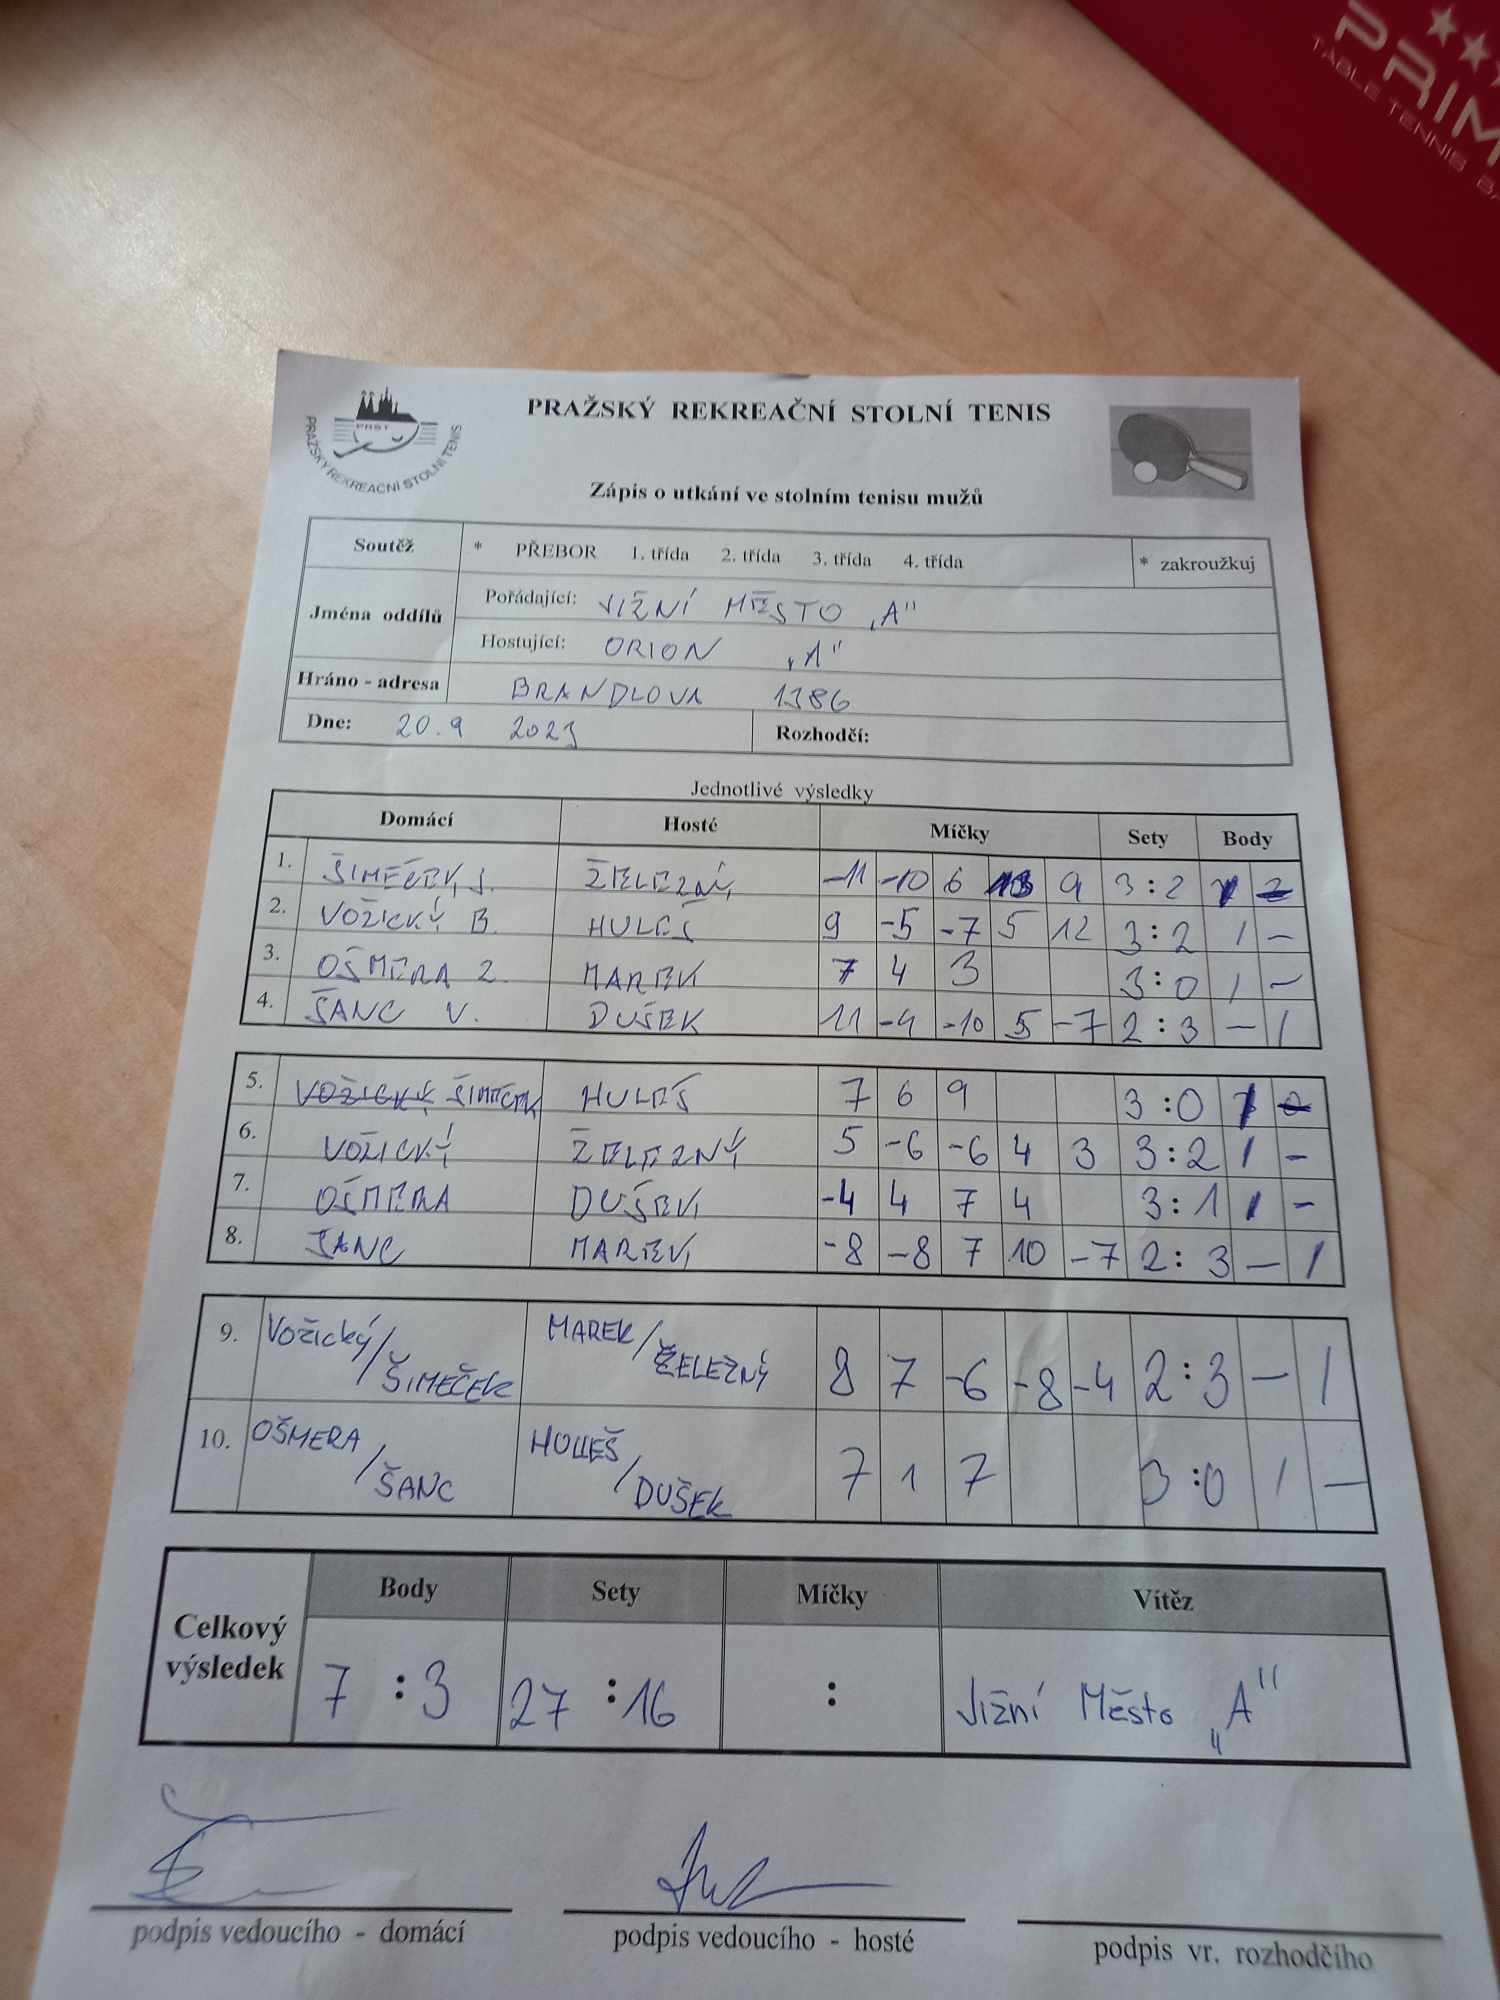 PRIM
TABLE TENNIS BA
PRAŽSKÝ REKREAČNÍ STOLNÍ TENIS
PRST
PRAŽSKÝ REKREAČNÍ STOLNÍ TENIS
Zápis o utkání ve stolním tenisu mužů
Soutěž * PŘEBOR 1. třída 2. třída 3. třída 4. třída * zakroužkuj
Jména oddílů
Pořádající: JIŽNÍ MĚSTO „A"
Hostující: ORION „A"
Hráno - adresa BRANDLOVA 1386
Dne: 20.9 2023 Rozhodčí:
Jednotlivé výsledky
Domácí Hosté Míčky Sety Body
1. ŠIMEČEK J. ŽELEZNÝ -11 -10 6 13 9 3:2 1 2
2. VOŽICKÝ B. HULEŠ 9 -5 -7 5 12 3:2 1 -
3. OŠMERA Z. MAREK 7 4 3 3:0 1 -
4. ŠANC V. DUŠEK 11 -4 -10 5 -7 2:3 - 1
5. VOŽICKÝ ŠIMEČEK HULEŠ 7 6 9 3:0 1 0
6. VOŽICKÝ ŽELEZNÝ 5 -6 -6 4 3 3:2 1 -
7. OŠMERA DUŠEK -4 4 7 4 3:1 1 -
8. ŠANC MAREK -8 -8 7 10 -7 2:3 - 1
9. Vožický/ŠIMEČEK MAREK/ŽELEZNÝ 8 7 -6 -8 -4 2:3 - 1
10. OŠMERA/ŠANC HULEŠ/DUŠEK 7 1 7 3:0 1 -
Celkový výsledek
Body Sety Míčky Vítěz
7 : 3 27 : 16 : Jižní Město „A"
podpis vedoucího - domácí podpis vedoucího - hosté podpis vr. rozhodčího